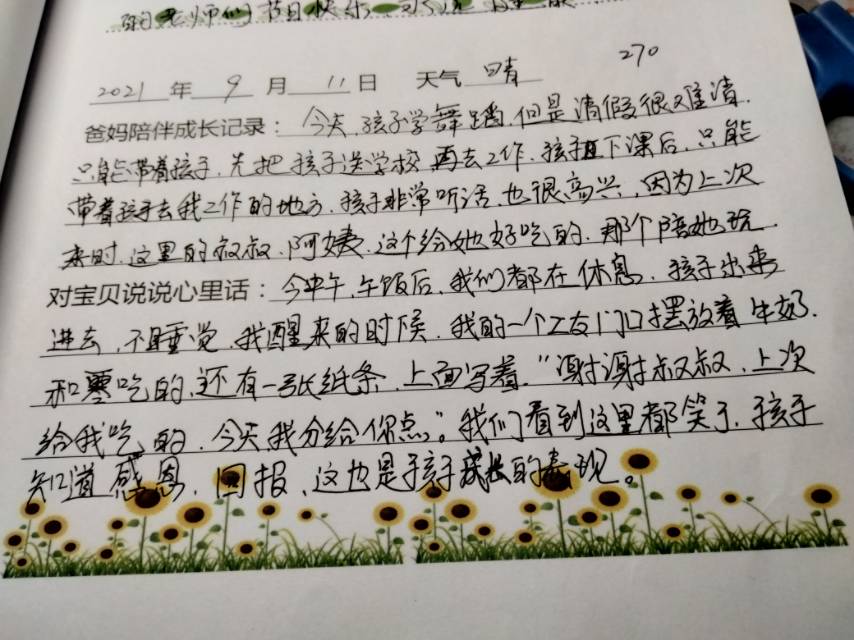 的老师们节日快乐
270
2021年9月11日 天气 晴
爸妈陪伴成长记录：今天，孩子学舞蹈，但是清假很难清.
只能带着孩子，先把孩子送学校，再去工作，孩子下课后，只能
带着孩子去我工作的地方，孩子非常听话，也很高兴，因为上次
来时，这里的叔叔、阿姨，这个给她好吃的，那个陪她玩.
对宝贝说说心里话：今中午，午饭后，我们都在休息，孩子出来
进去，不睡觉，我醒来的时候，我的一个工友门口摆放着牛奶.
和零吃的，还有一张纸条，上面写着，“谢谢叔叔，上次
给我吃的，今天我分给你点”。我们看到这里都笑了，孩子
知道感恩，回报，这也是孩子成长的表现。